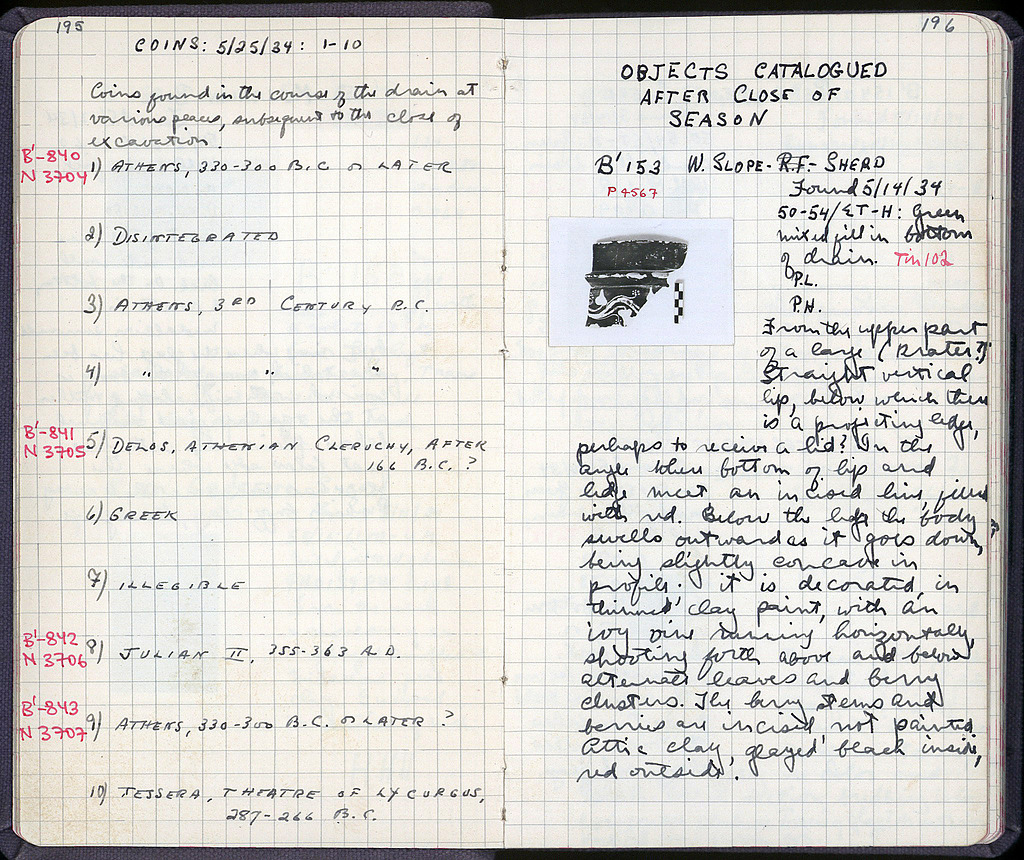 195
COINS: 5/25/34: 1-10
Coins found in the course of the drain at
various places, subsequent to the close of
excavation.
B'-840
N 3704
1) ATHENS, 330-300 B.C. or LATER
2) DISINTEGRATED
3) ATHENS, 3RD CENTURY B.C.
4) " " "
B'-841
N 3705
5) DELOS, ATHENIAN CLERUCHY, AFTER
166 B.C.?
6) GREEK
7) ILLEGIBLE
B'-842
N 3706
8) JULIAN II, 355-363 A.D.
B'-843
N 3707
9) ATHENS, 330-300 B.C. or LATER ?
10) TESSERA, THEATRE OF LYCURGUS,
287-266 B.C.
196
OBJECTS CATALOGUED
AFTER CLOSE OF
SEASON
B' 153 W. SLOPE- R.F.- SHERD
P 4567
Found 5/14/34
50-54/ΣT-H: Green
mixed fill in bottom
of drain. Tin 102
P.L.
P.H.
From the upper part
of a large (Krater?)
Straight vertical
lip, below which there
is a projecting ledge,
perhaps to receive a lid? In the
angle where bottom of lip and
ledge meet an incised line, filled
with red. Below the ledge the body
swells outward as it goes down,
being slightly concave in
profile; it is decorated, in
thinned clay paint, with an
ivy vine running horizontally,
shooting forth above and below
alternate leaves and berry
clusters. The berry stems and
berries are incised not painted.
Attic clay, glazed black inside,
red outside.